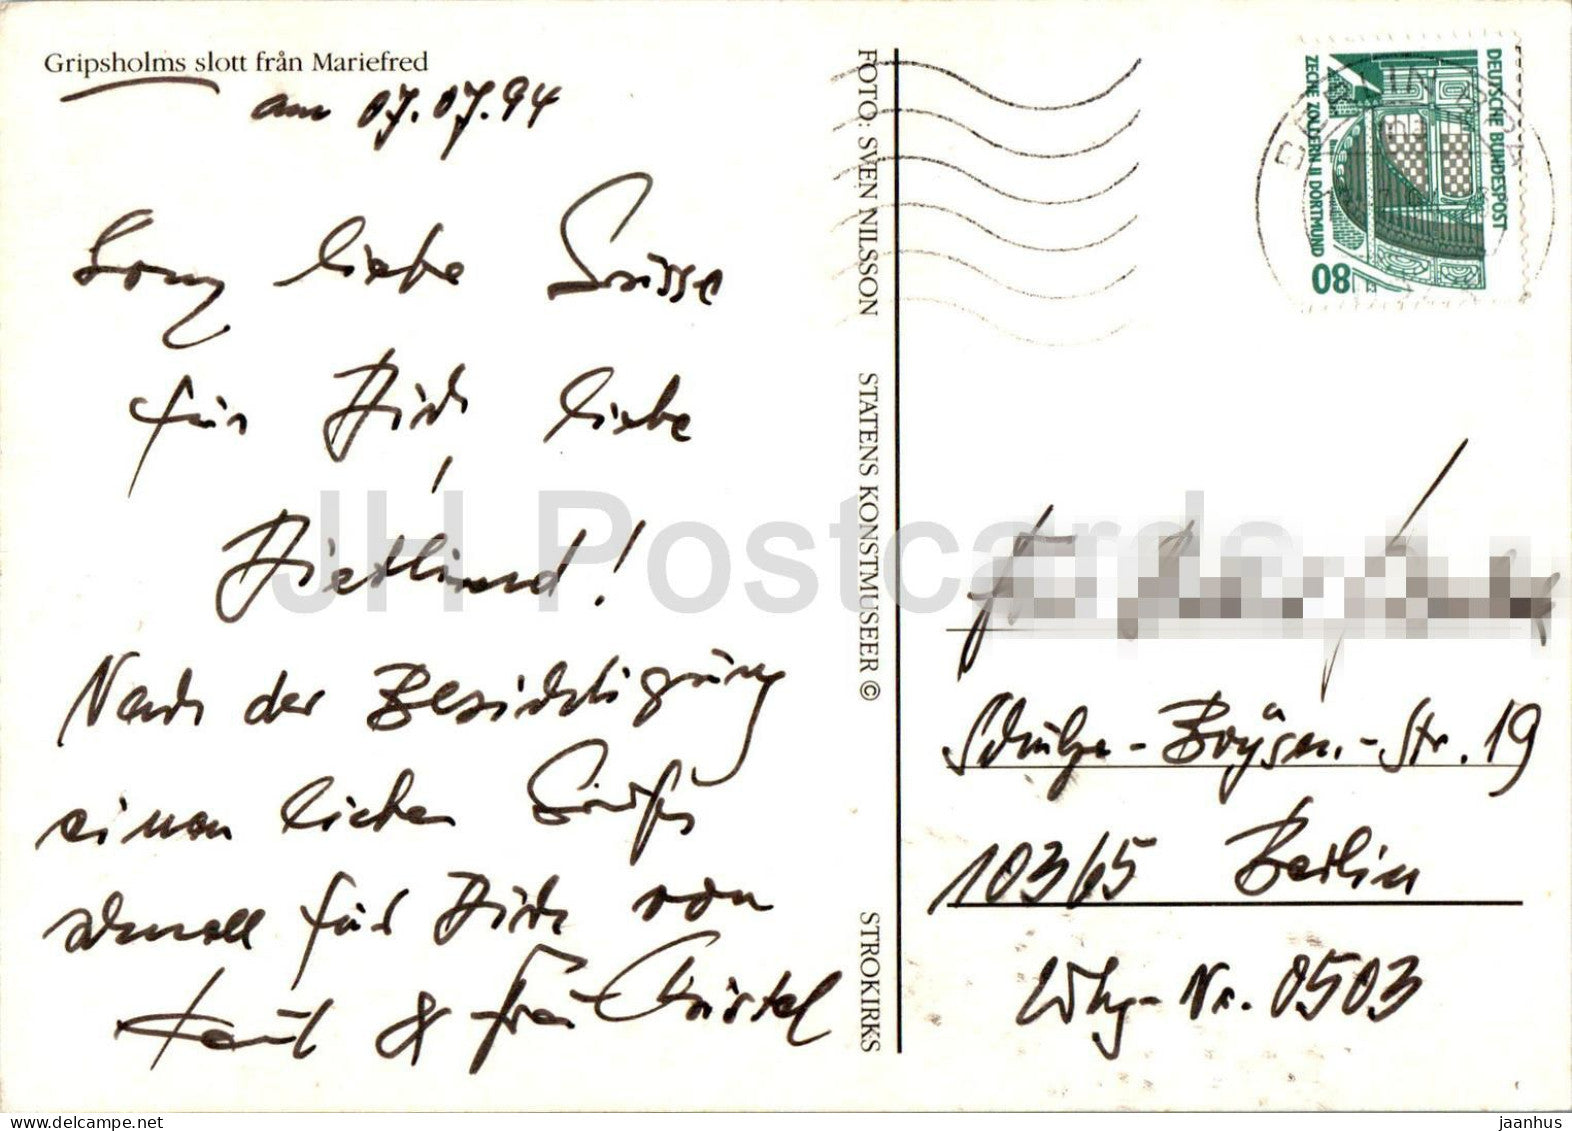 Gripsholms slott från Mariefred
am 07.07.94
Ganz liebe Grüsse
für Dich liebe
Dietlind!
Nach der Besichtigung
einen lieben Gruß
schnell für Dich von
& Frau Christel
FOTO: SVEN NILSSON STATENS KONSTMUSEER © STROKIRKS
DEUTSCHE BUNDESPOST
ZECHE ZOLLERN II DORTMUND
80
BERLIN
Schulze-Boysen-Str. 19
10365 Berlin
Whg-Nr. 0503
JH Postcards
jaanhus
delcampe.net